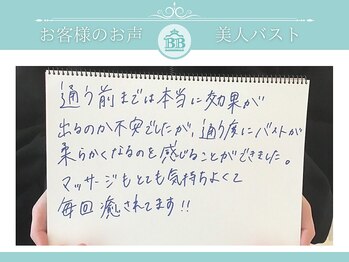 お客様のお声
BB
美人バスト
通う前までは本当に効果が
出るのか不安でしたが、通う度にバストが
柔らかくなるのを感じることができました。
マッサージもとても気持ちよくて
毎回癒されてます!!